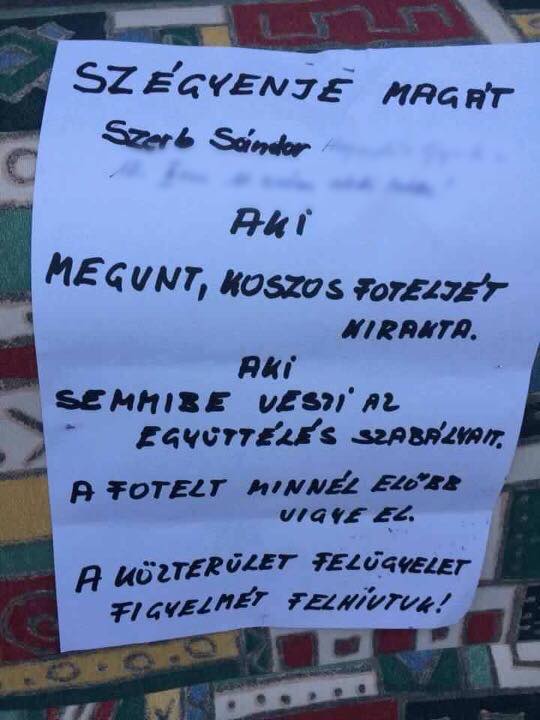 SZÉGYENJE MAGÁT
Szerb Sándor
AKI
MEGUNT, KOSZOS FOTELJÉT
KIRAKTA.
AKI
SEMMIBE VESZI AZ
EGYÜTTÉLÉS SZABÁLYAIT.
A FOTELT MINNÉL ELŐBB
VIGYE EL.
A KÖZTERÜLET FELÜGYELET
FIGYELMÉT FELHÍVTUK!